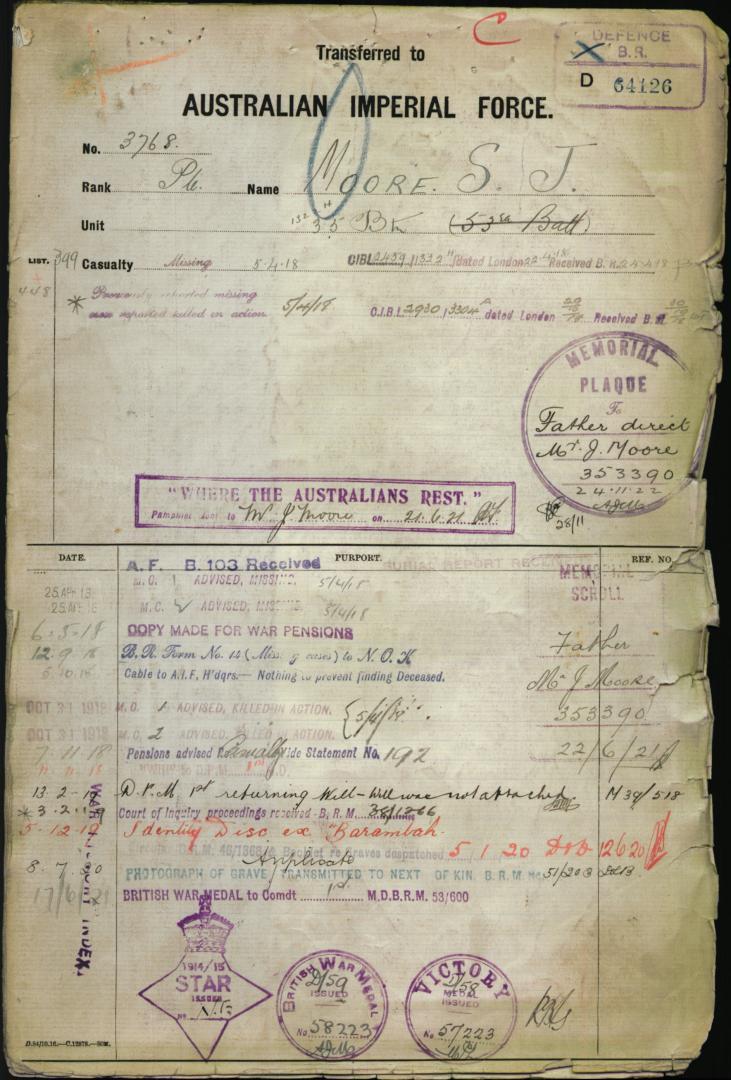 C
DEFENCE
B.R.
D 64126
Transferred to
AUSTRALIAN IMPERIAL FORCE.
No. 3768.
Rank Pte. Name MOORE. S. J.
Unit 35th Bn (53rd Batt)
LIST. 399 Casualty Missing 5-4-18 CIBL 2459 dated London 22-4-18 Received B.R.
448
* Previously reported missing
now reported killed in action. 5/4/18 C.I.B.L. 2930 dated London Received B.R.
MEMORIAL
PLAQUE
To
Father direct
Mr. J. Moore
353390
24.11.22
28/11
"WHERE THE AUSTRALIANS REST."
Pamphlet sent to Mr J Moore on 21.6.21
DATE. PURPORT. REF. NO.
A.F. B.103 Received BURIAL REPORT
M.C. 1 ADVISED, MISSING. 5/4/18
25 APR 18
M.C. 2 ADVISED, MISSING. 5/4/18
MEMORIAL
SCROLL
6-5-18 COPY MADE FOR WAR PENSIONS
Father
12.9.18 B.R. Form No. 14 (Missing cases) to N.O.K
5.10.18 Cable to A.I.F. H'dqrs.— Nothing to prevent finding Deceased.
Mr J Moore
OCT 31 1918 M.C. 1 ADVISED, KILLED IN ACTION. {5/4/18.
353390
OCT 31 1918 M.C. 2 ADVISED, KILLED IN ACTION.
7-11-18 Pensions advised Casualty vide Statement No. 192
22/6/21
13-2-19 D.P.M. 1st returning Will-Will was not attached. M 39/518
* 3-2-19 Court of Inquiry proceedings received - B.R.M. 38/1266
5-12-19 Identity Disc ex "Barambah.
Circular despatched 5 1 20
8.7.20 Triplicate
PHOTOGRAPH OF GRAVE TRANSMITTED TO NEXT OF KIN. B.R.M. No. 51/203
17/6/21 BRITISH WAR MEDAL to Comdt 1st M.D.B.R.M. 53/600
INDEX.
1914/15
STAR
ISSUED
No
BRITISH WAR MEDAL
D/59
ISSUED
No 58223
VICTORY
D/58
MEDAL
ISSUED
No 57223